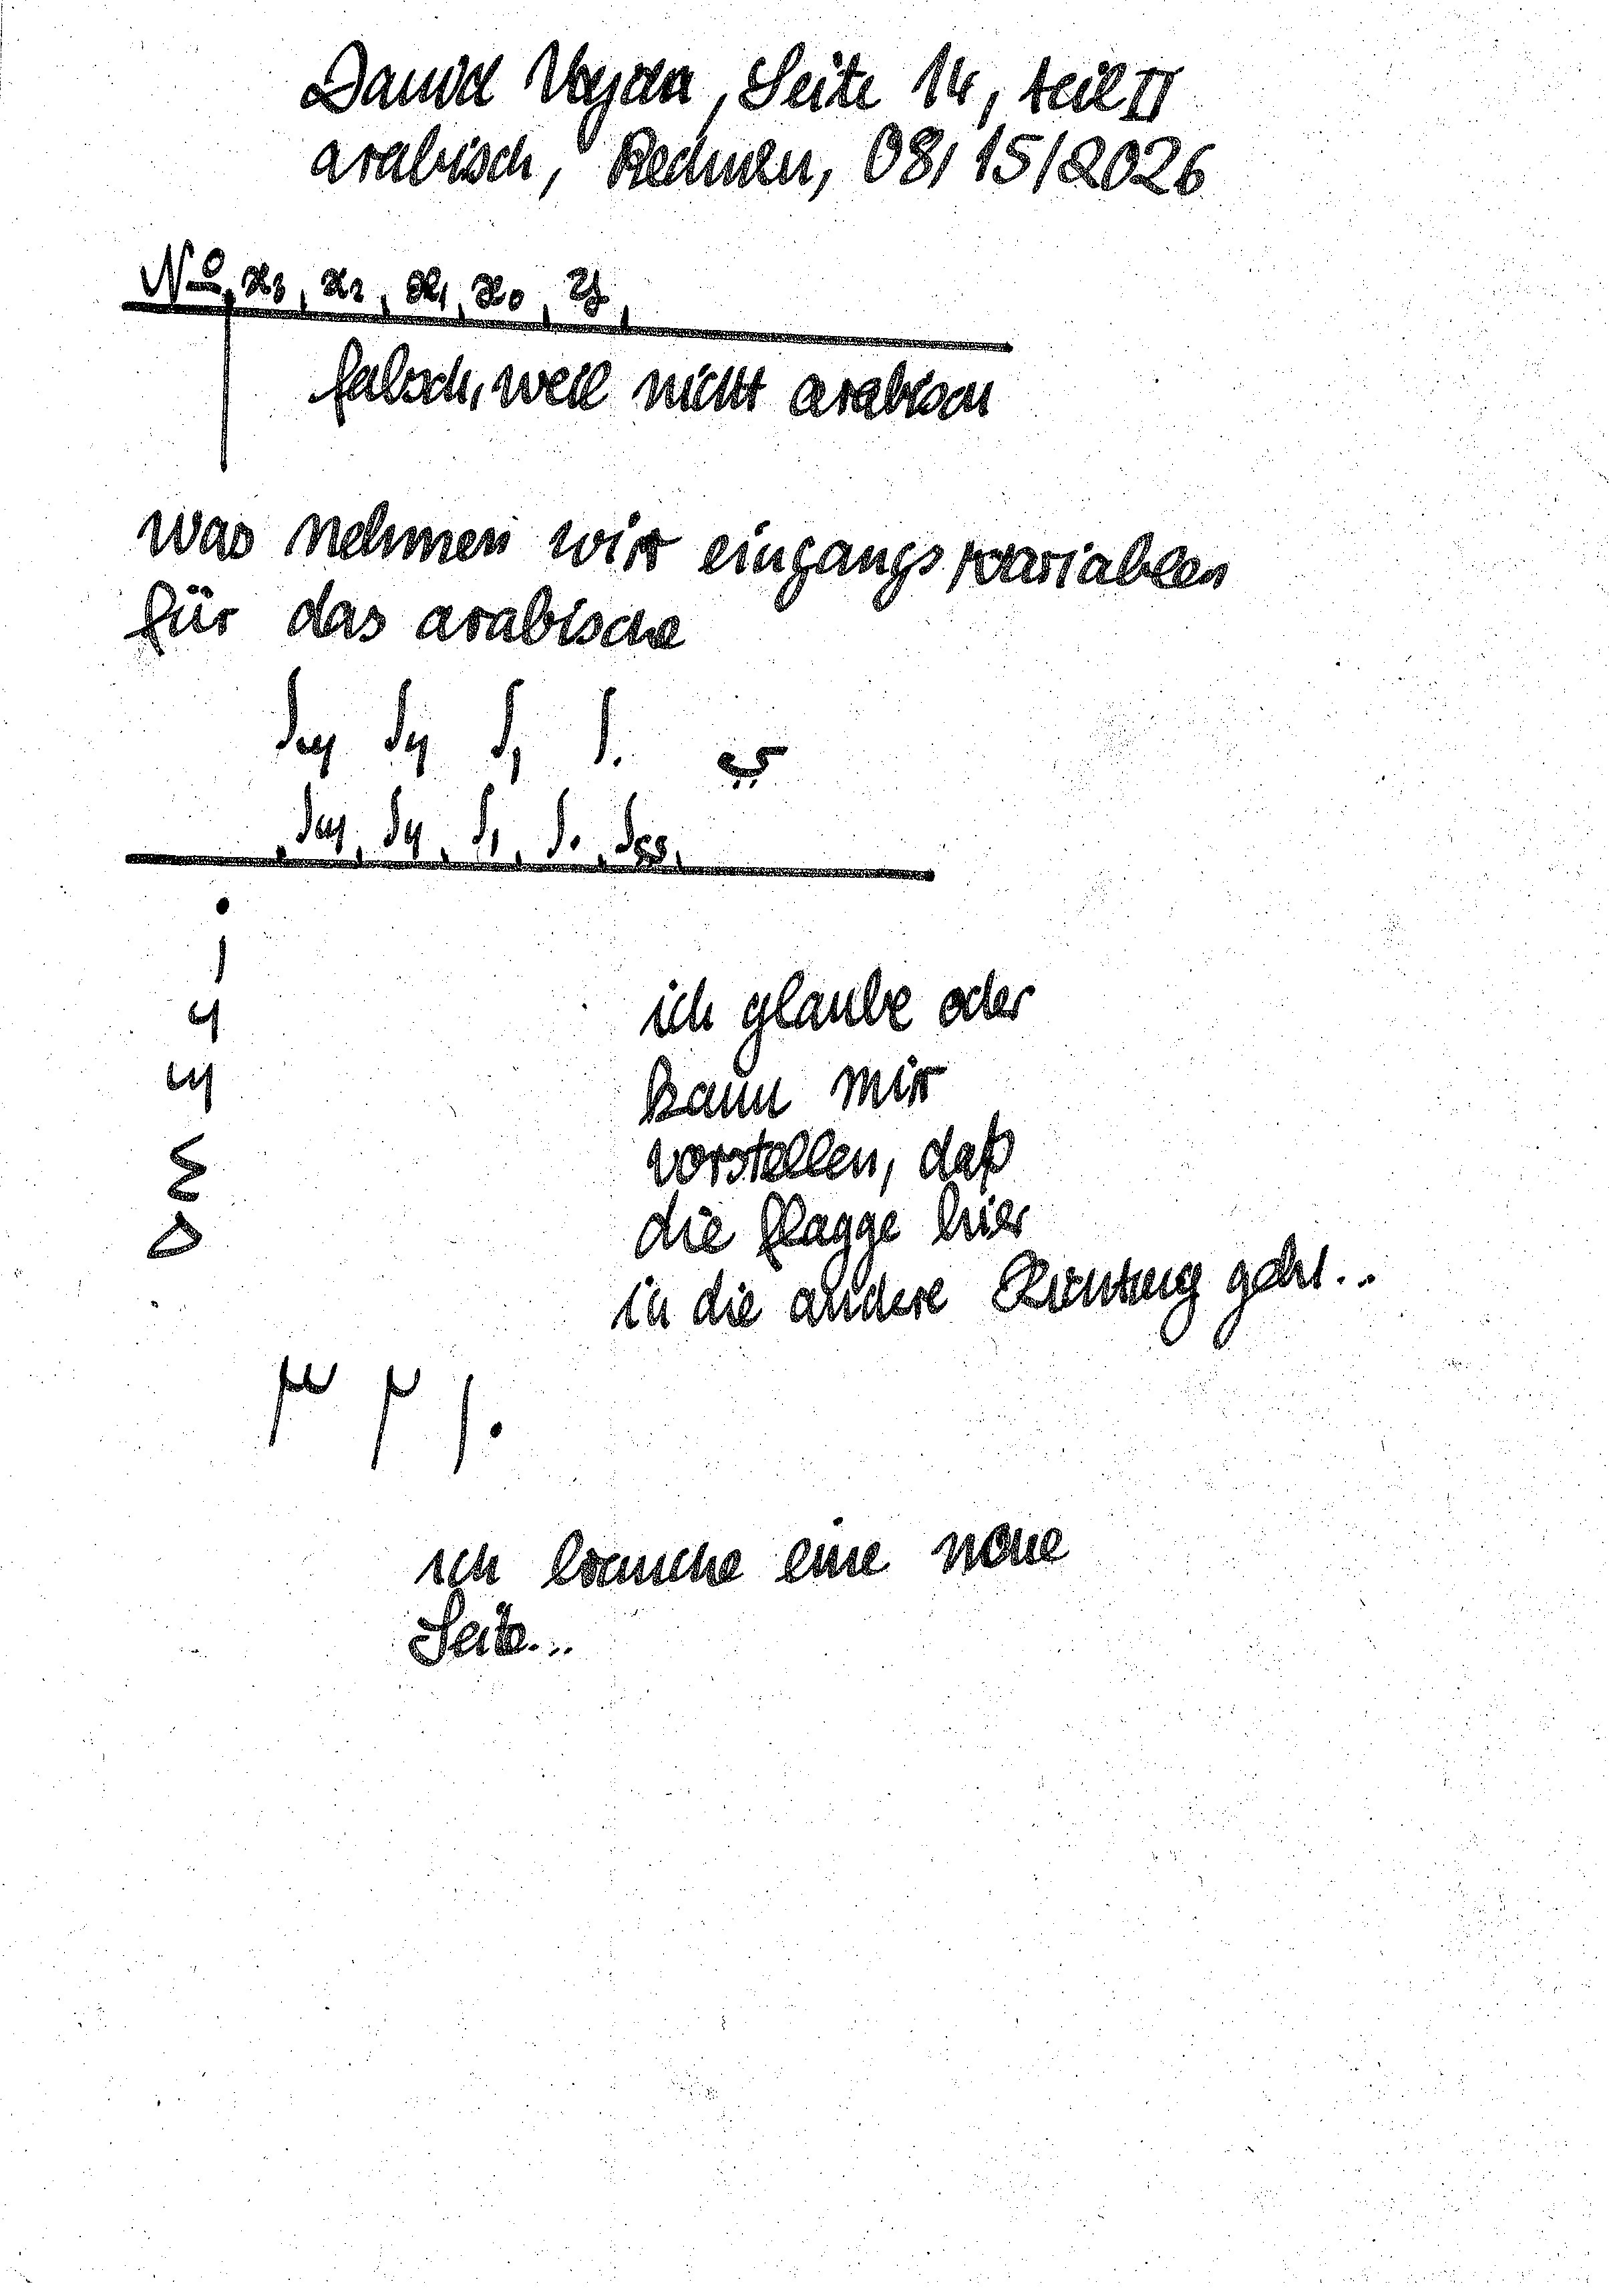 David Vajda, Seite 14, teil II
arabisch, Rechnen, 08/15/2026
No x3 x2 x1 x0 y
falsch, weil nicht arabisch
was nehmen wir eingangsvariablen
für das arabische
ich glaube oder
kann mir
vorstellen, daß
die flagge hier
in die andere Richtung geht..
٣ ٢ ١.
ich brauche eine neue
Seite...